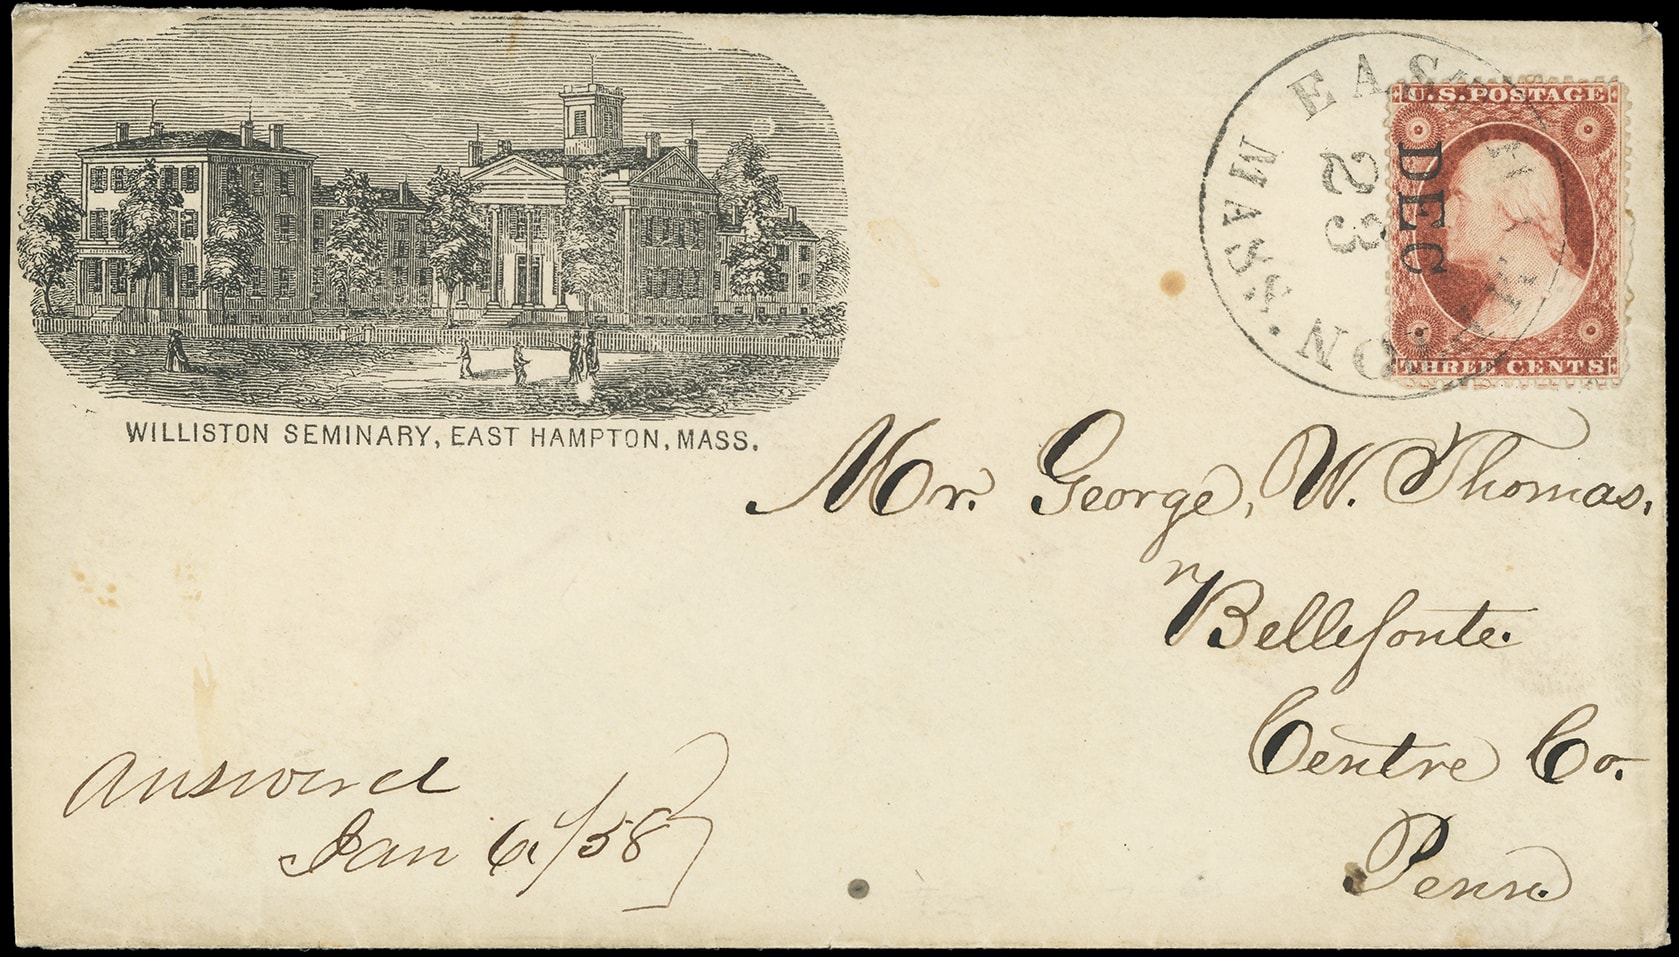 WILLISTON SEMINARY, EAST HAMPTON, MASS.
EAST HAMPTON
MASS.
DEC
23
U.S. POSTAGE
THREE CENTS
Mr. George, W. Thomas,
Bellefonte.
Centre Co.
Penn.
Answered
Jan 6./58